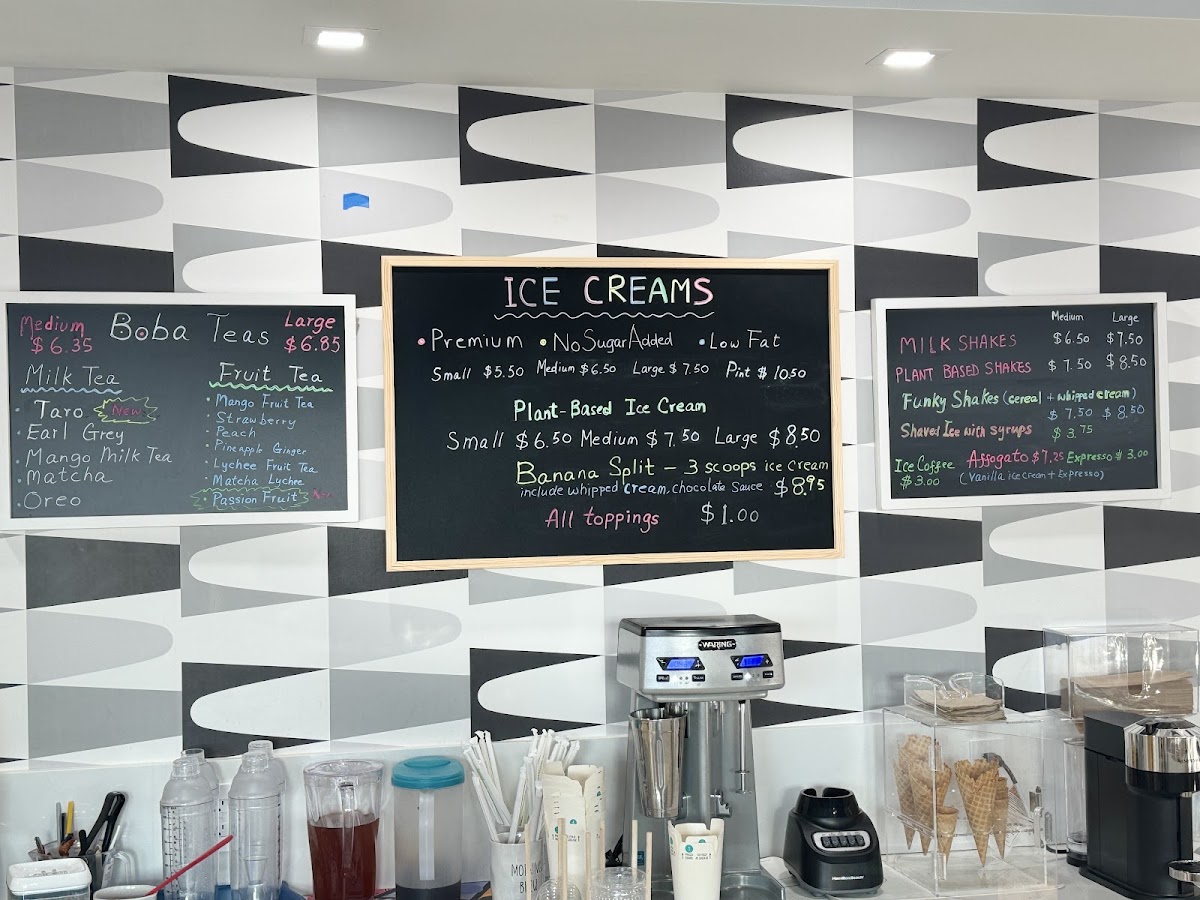 Medium Boba Teas Large
$6.35 $6.85
Milk Tea
Taro New
Earl Grey
Mango Milk Tea
Matcha
Oreo
Fruit Tea
Mango Fruit Tea
Strawberry
Peach
Pineapple Ginger
Lychee Fruit Tea
Matcha Lychee
Passion Fruit
ICE CREAMS
• Premium • No Sugar Added • Low Fat
Small $5.50 Medium $6.50 Large $7.50 Pint $10.50
Plant-Based Ice Cream
Small $6.50 Medium $7.50 Large $8.50
Banana Split - 3 scoops ice cream
include whipped cream, chocolate sauce $8.95
All toppings $1.00
Medium Large
MILK SHAKES $6.50 $7.50
PLANT BASED SHAKES $7.50 $8.50
Funky Shakes (cereal + whipped cream)
$7.50 $8.50
Shaved Ice with syrups $3.75
Ice Coffee Affogato $7.25 Expresso $3.00
$3.00 (Vanilla ice cream + Expresso)
WARING